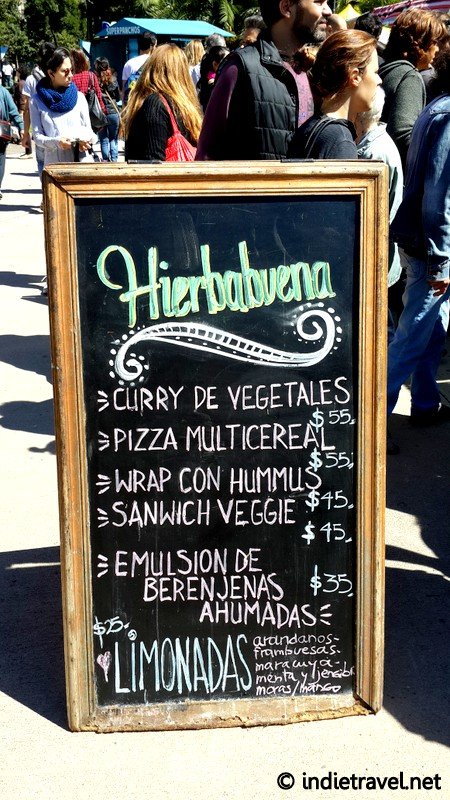 SUPERPANCHOS
Hierbabuena
CURRY DE VEGETALES
$55.
PIZZA MULTICEREAL
$55.
WRAP CON HUMMUS
$45.
SANWICH VEGGIE
$45.
EMULSION DE
BERENJENAS
AHUMADAS
$35
$25.
LIMONADAS
arandanos-
frambuesas-
maracuya-
menta y jensibre
moras/mango
© indietravel.net